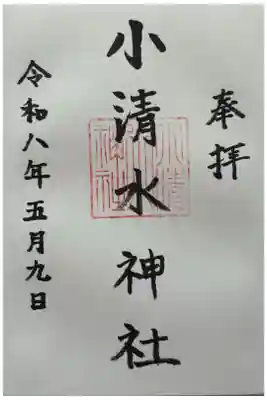 奉拝
小清水神社
令和八年五月九日